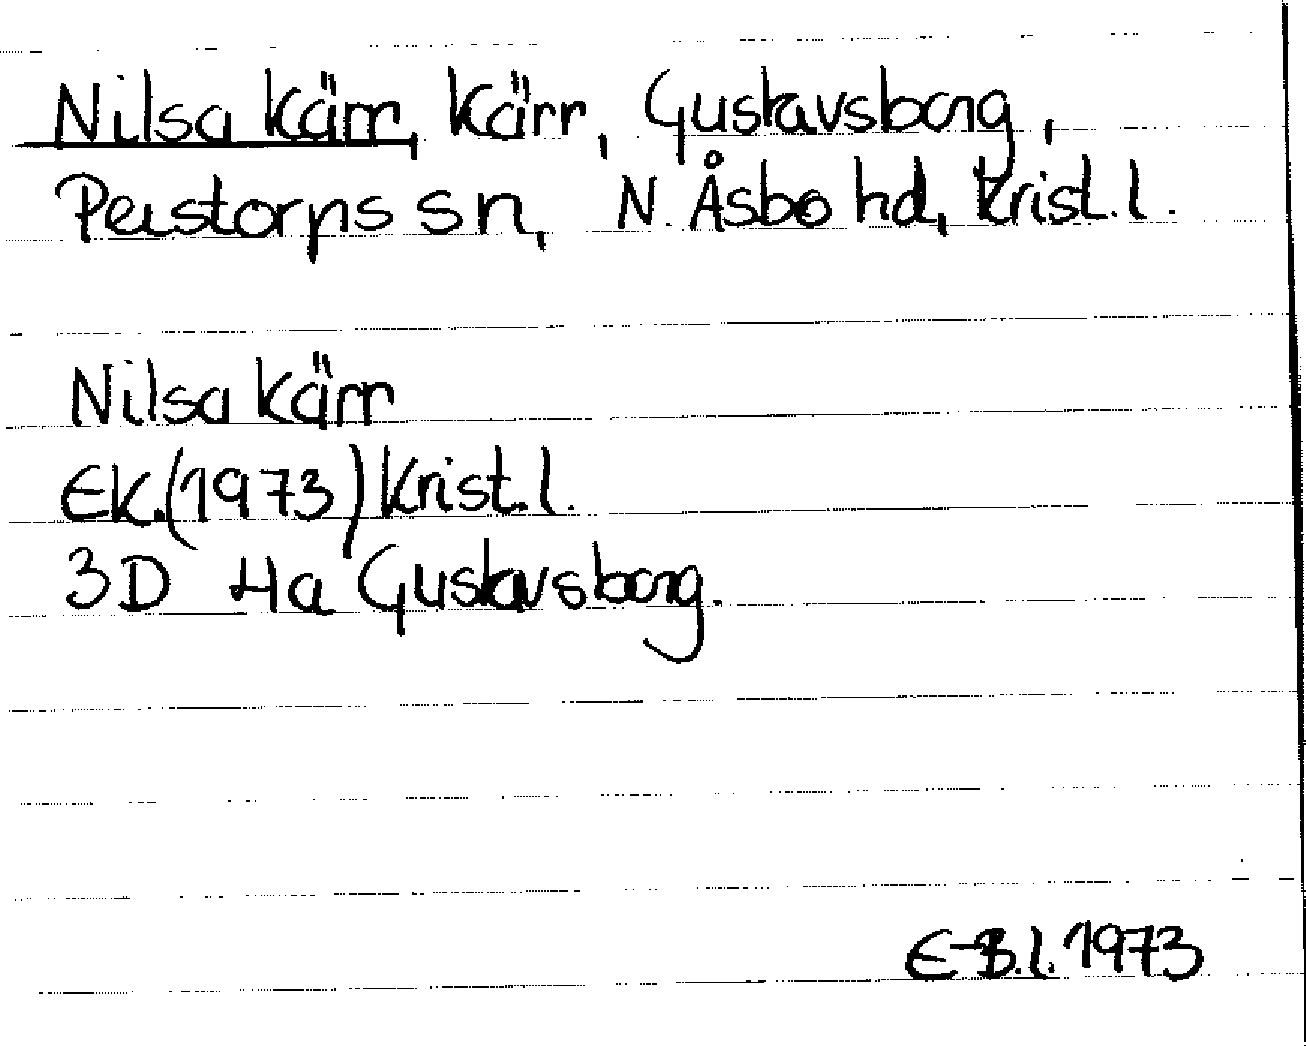 Nilsa kärr, kärr, Gustavsborg,
Perstorps sn, N. Åsbo hd, Krist. l.
Nilsa kärr
EK. (1973) Krist. l.
3D 4a Gustavsborg.
E-B. l. 1973